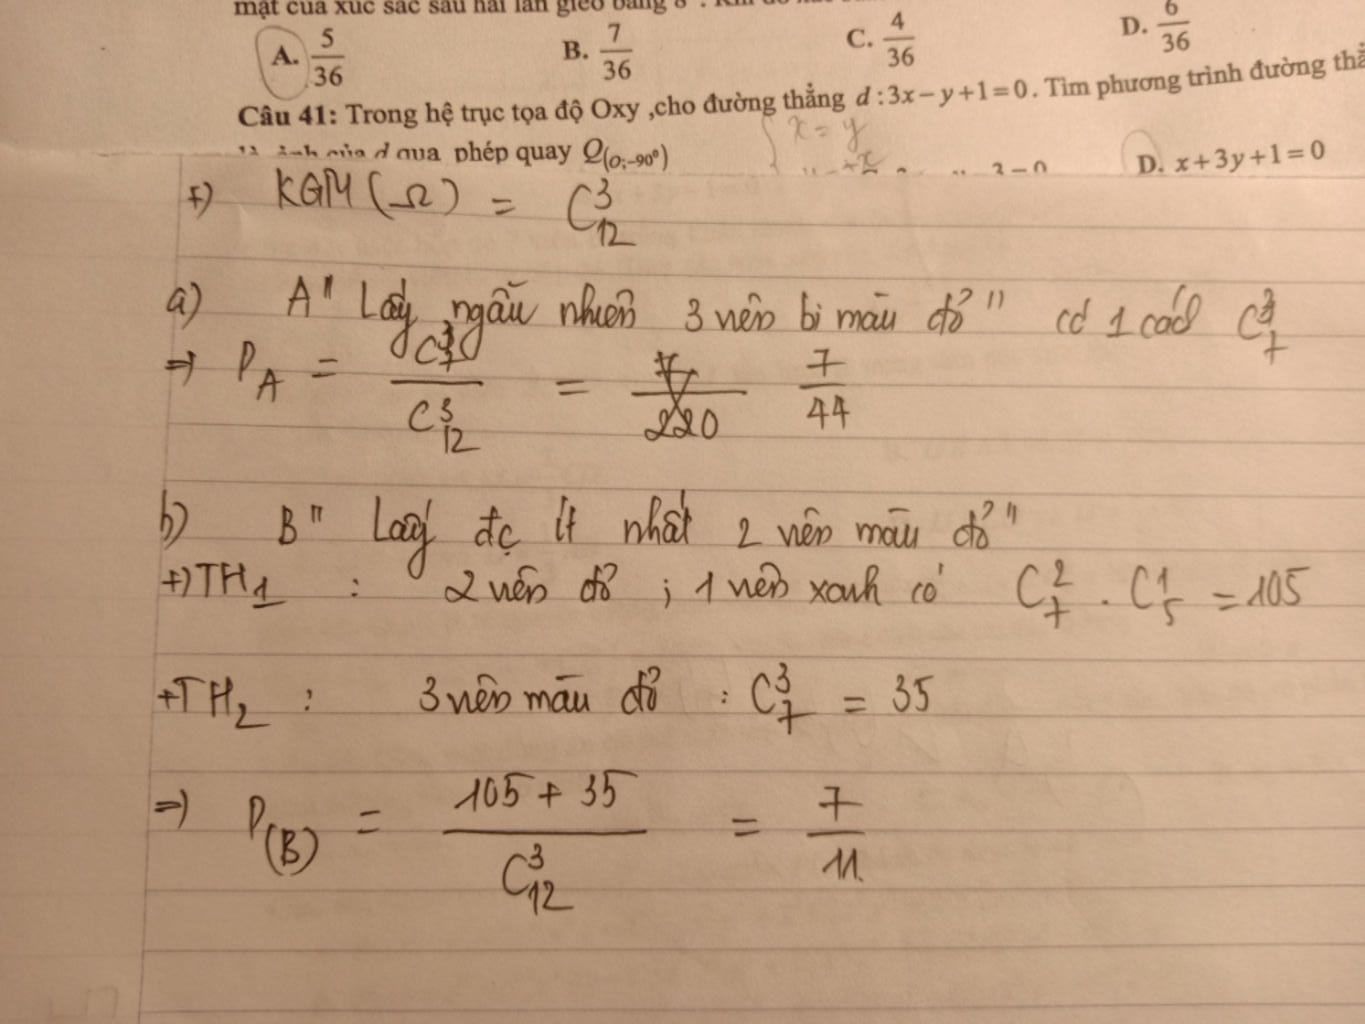 mặt của xúc sắc sau hai lần gieo bằng 8
A. 5/36 B. 7/36 C. 4/36 D. 6/36
Câu 41: Trong hệ trục tọa độ Oxy ,cho đường thẳng d : 3x − y + 1 = 0 . Tìm phương trình đường
của d qua phép quay Q(O;−90°) { x = y
D. x + 3y + 1 = 0
+) KGM (Ω) = C³₁₂
a) A" Lấy ngẫu nhiên 3 viên bi màu đỏ" có 1 cách C³₇
=> P_A = C³₇ / C³₁₂ = 7/44
b) B" Lấy đc ít nhất 2 viên màu đỏ"
+) TH1 : 2 viên đỏ ; 1 viên xanh có C²₇ . C¹₅ = 105
+ TH2 : 3 viên màu đỏ : C³₇ = 35
=> P(B) = 105 + 35 / C³₁₂ = 7/11